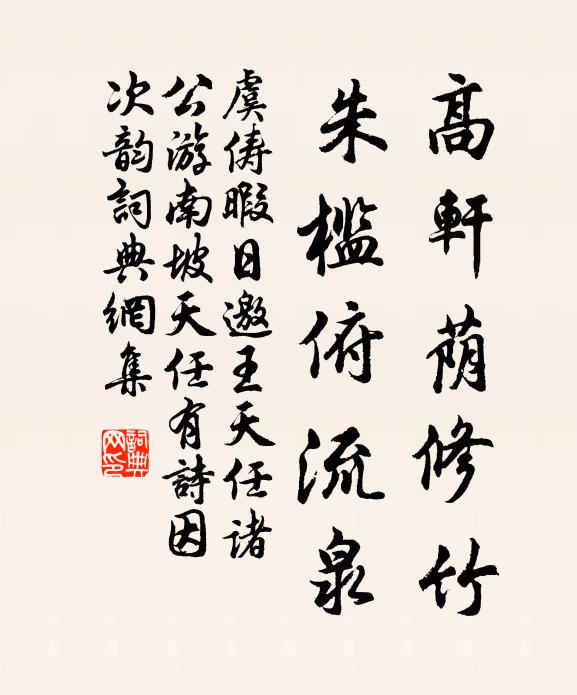 高軒荫修竹
朱檻俯流泉
虞儔暇日邀王天任諸
公游南坡天任有詩因
次韵詞典網集
詞典网印